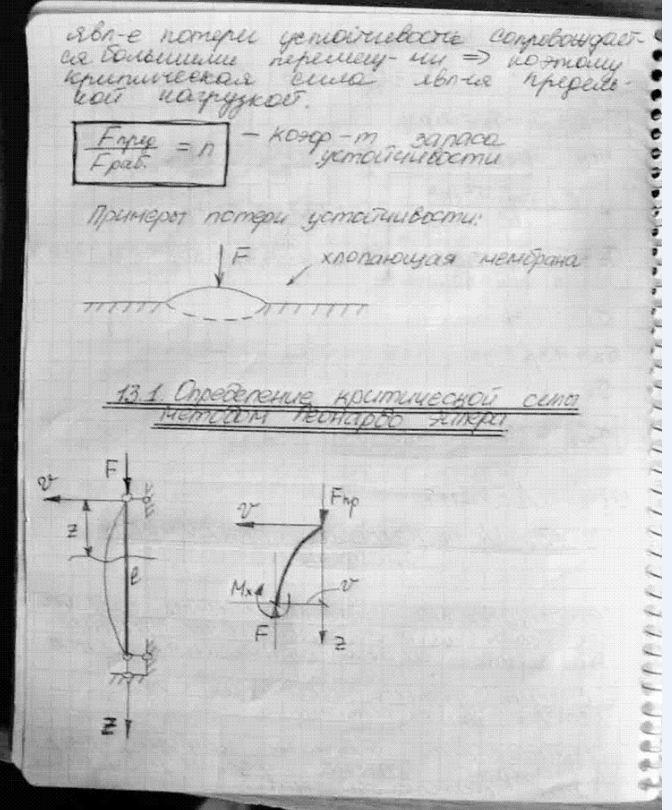 явл-е потери устойчивости сопровождает-
ся большими перемещ-ми => поэтому
критическая сила явл-ся предель-
ной нагрузкой.
Fпред/Fраб. = n - коэф-т запаса
устойчивости
Примеры потери устойчивости:
F
хлопающая мембрана
13.1. Определение критической силы
методом Леонардо Эйлера
F
v
z
l
z
Fкр
v
Mx
v
F
z